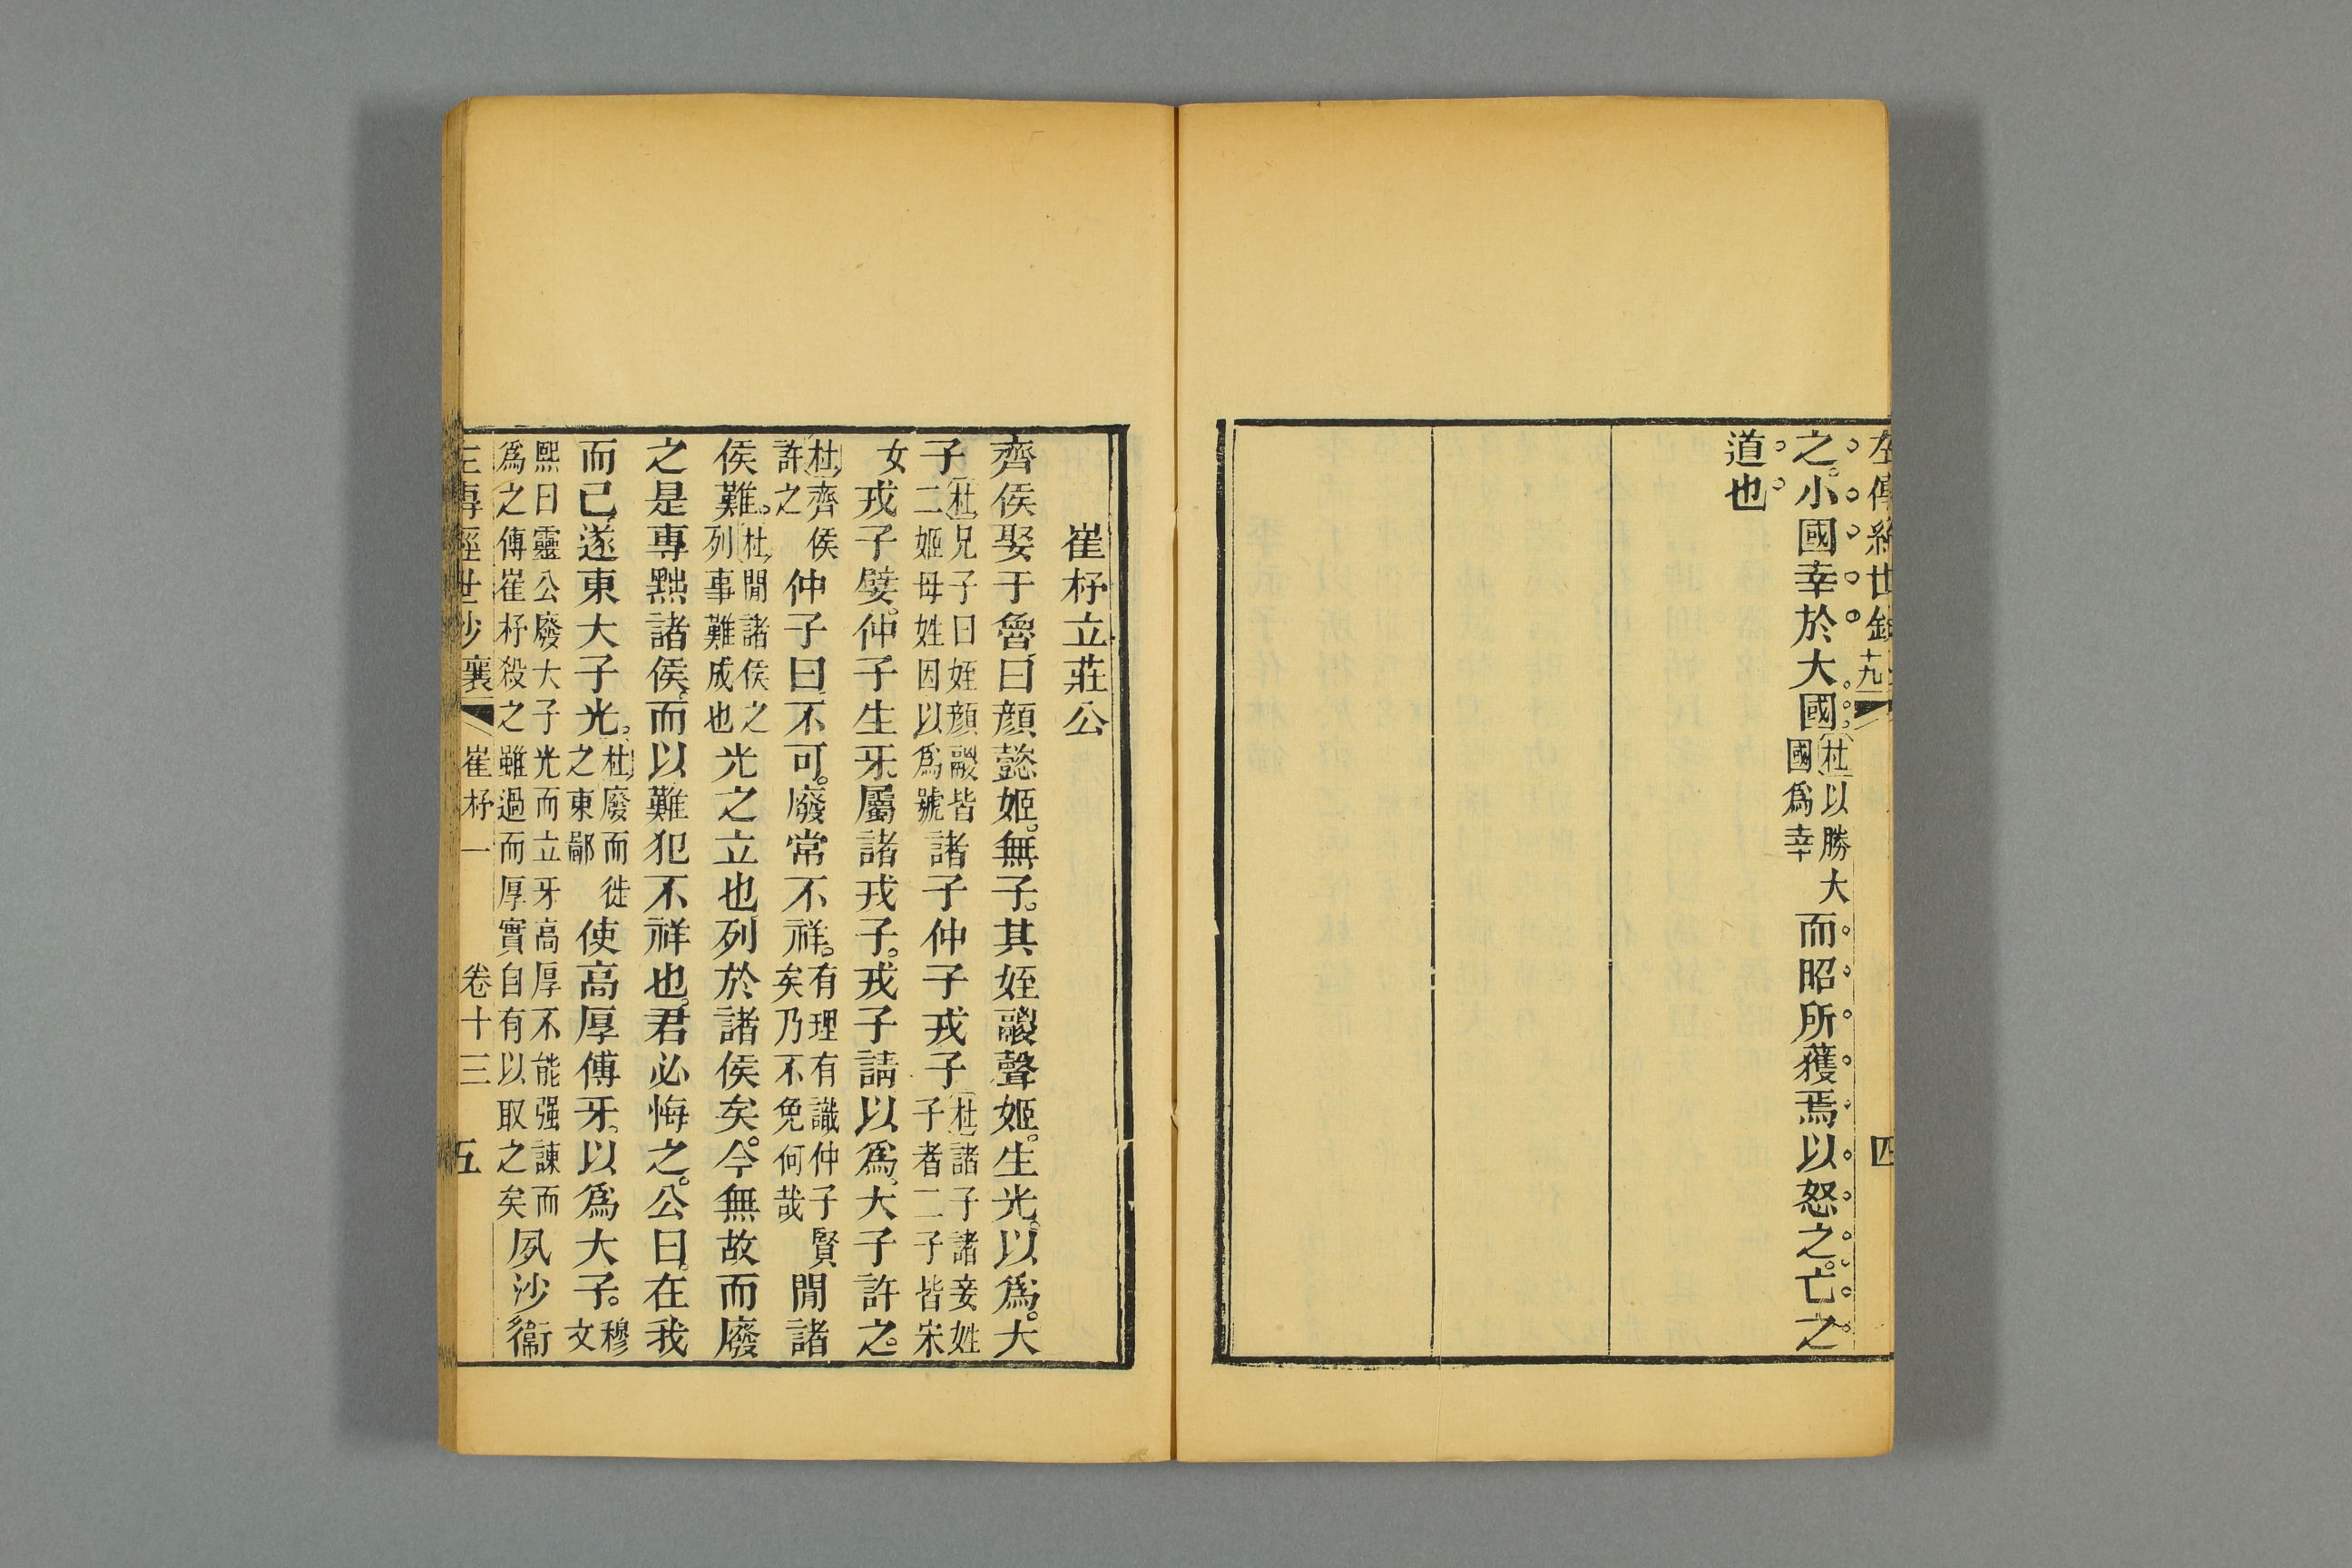 之小國幸於大國杜以勝大國爲幸而昭所獲焉以怒之亡之
道也
四
崔杼立莊公
齊侯娶于魯曰顔懿姬無子其姪鬷聲姬生光以爲大
子杜兄子曰姪顔鬷皆二姬母姓因以爲號諸子仲子戎子杜諸子諸妾姓子者二子皆宋
女戎子嬖仲子生牙屬諸戎子戎子請以爲大子許之
杜齊侯許之仲子曰不可廢常不祥有理有識仲子賢矣乃不免何哉閒諸
侯難杜閒諸侯之列事難成也光之立也列於諸侯矣今無故而廢
之是專黜諸侯而以難犯不祥也君必悔之公曰在我
而已遂東大子光杜廢而徙之東鄙使高厚傅牙以爲大子穆文
熙曰靈公廢大子光而立牙高厚不能强諫而爲之傅崔杼殺之雖過而厚實自有以取之矣夙沙衞
襄 崔杼一 卷十三 五